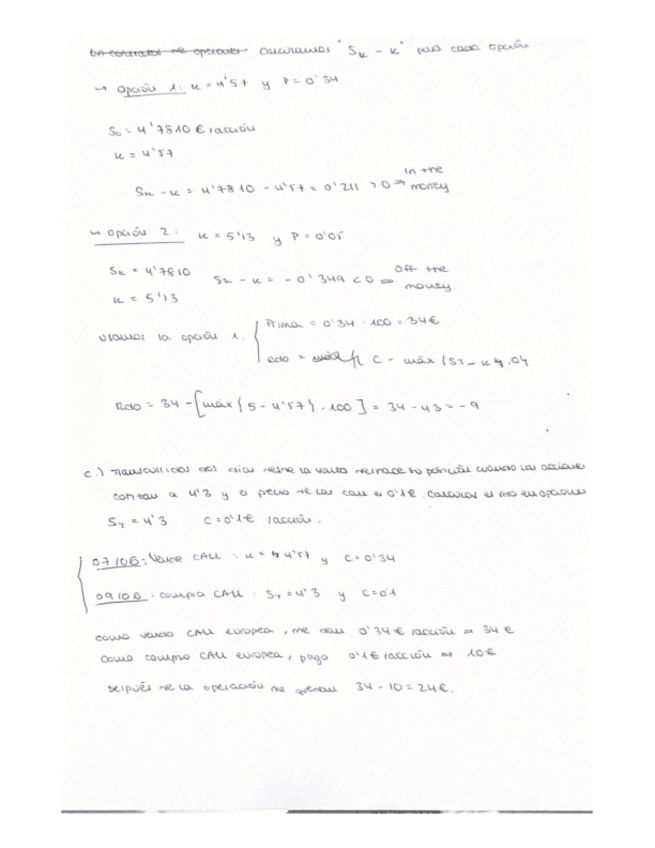 calculamos "Sk - K" para cada opción.
↪ Opción 1: K = 4'57 y P = 0'34
S0 = 4'7810 € /acción
K = 4'57
Sk - K = 4'7810 - 4'57 = 0'211 > 0 ⇒ in the money
↪ Opción 2: K = 5'13 y P = 0'05
Sk = 4'7810 Sk - K = - 0'349 < 0 ⇒ Off the money.
K = 5'13
Usamos la opción 1. { Prima = 0'34 · 100 = 34€
Rdo = C - máx {ST - K
Rdo = 34 - [máx { 5 - 4'57 } · 100 ] = 34 - 43 = - 9
c.) Transcurridos dos días desde la venta deshace su posición cuando las acciones
cotizan a 4'3 y el precio de las call es 0'1€. Calcular el rdo en opciones
ST = 4'3 C = 0'1€ /acción.
07/06: Vende CALL : K = 4'57 y C = 0'34
09/06: compra CALL : ST = 4'3 y C = 0'1
como vendo CALL europea, me dan 0'34 € /acción ⇒ 34 €
Como compro CALL europea, pago 0'1€ /acción ⇒ 10€
Después de la operación me quedan 34 - 10 = 24€.